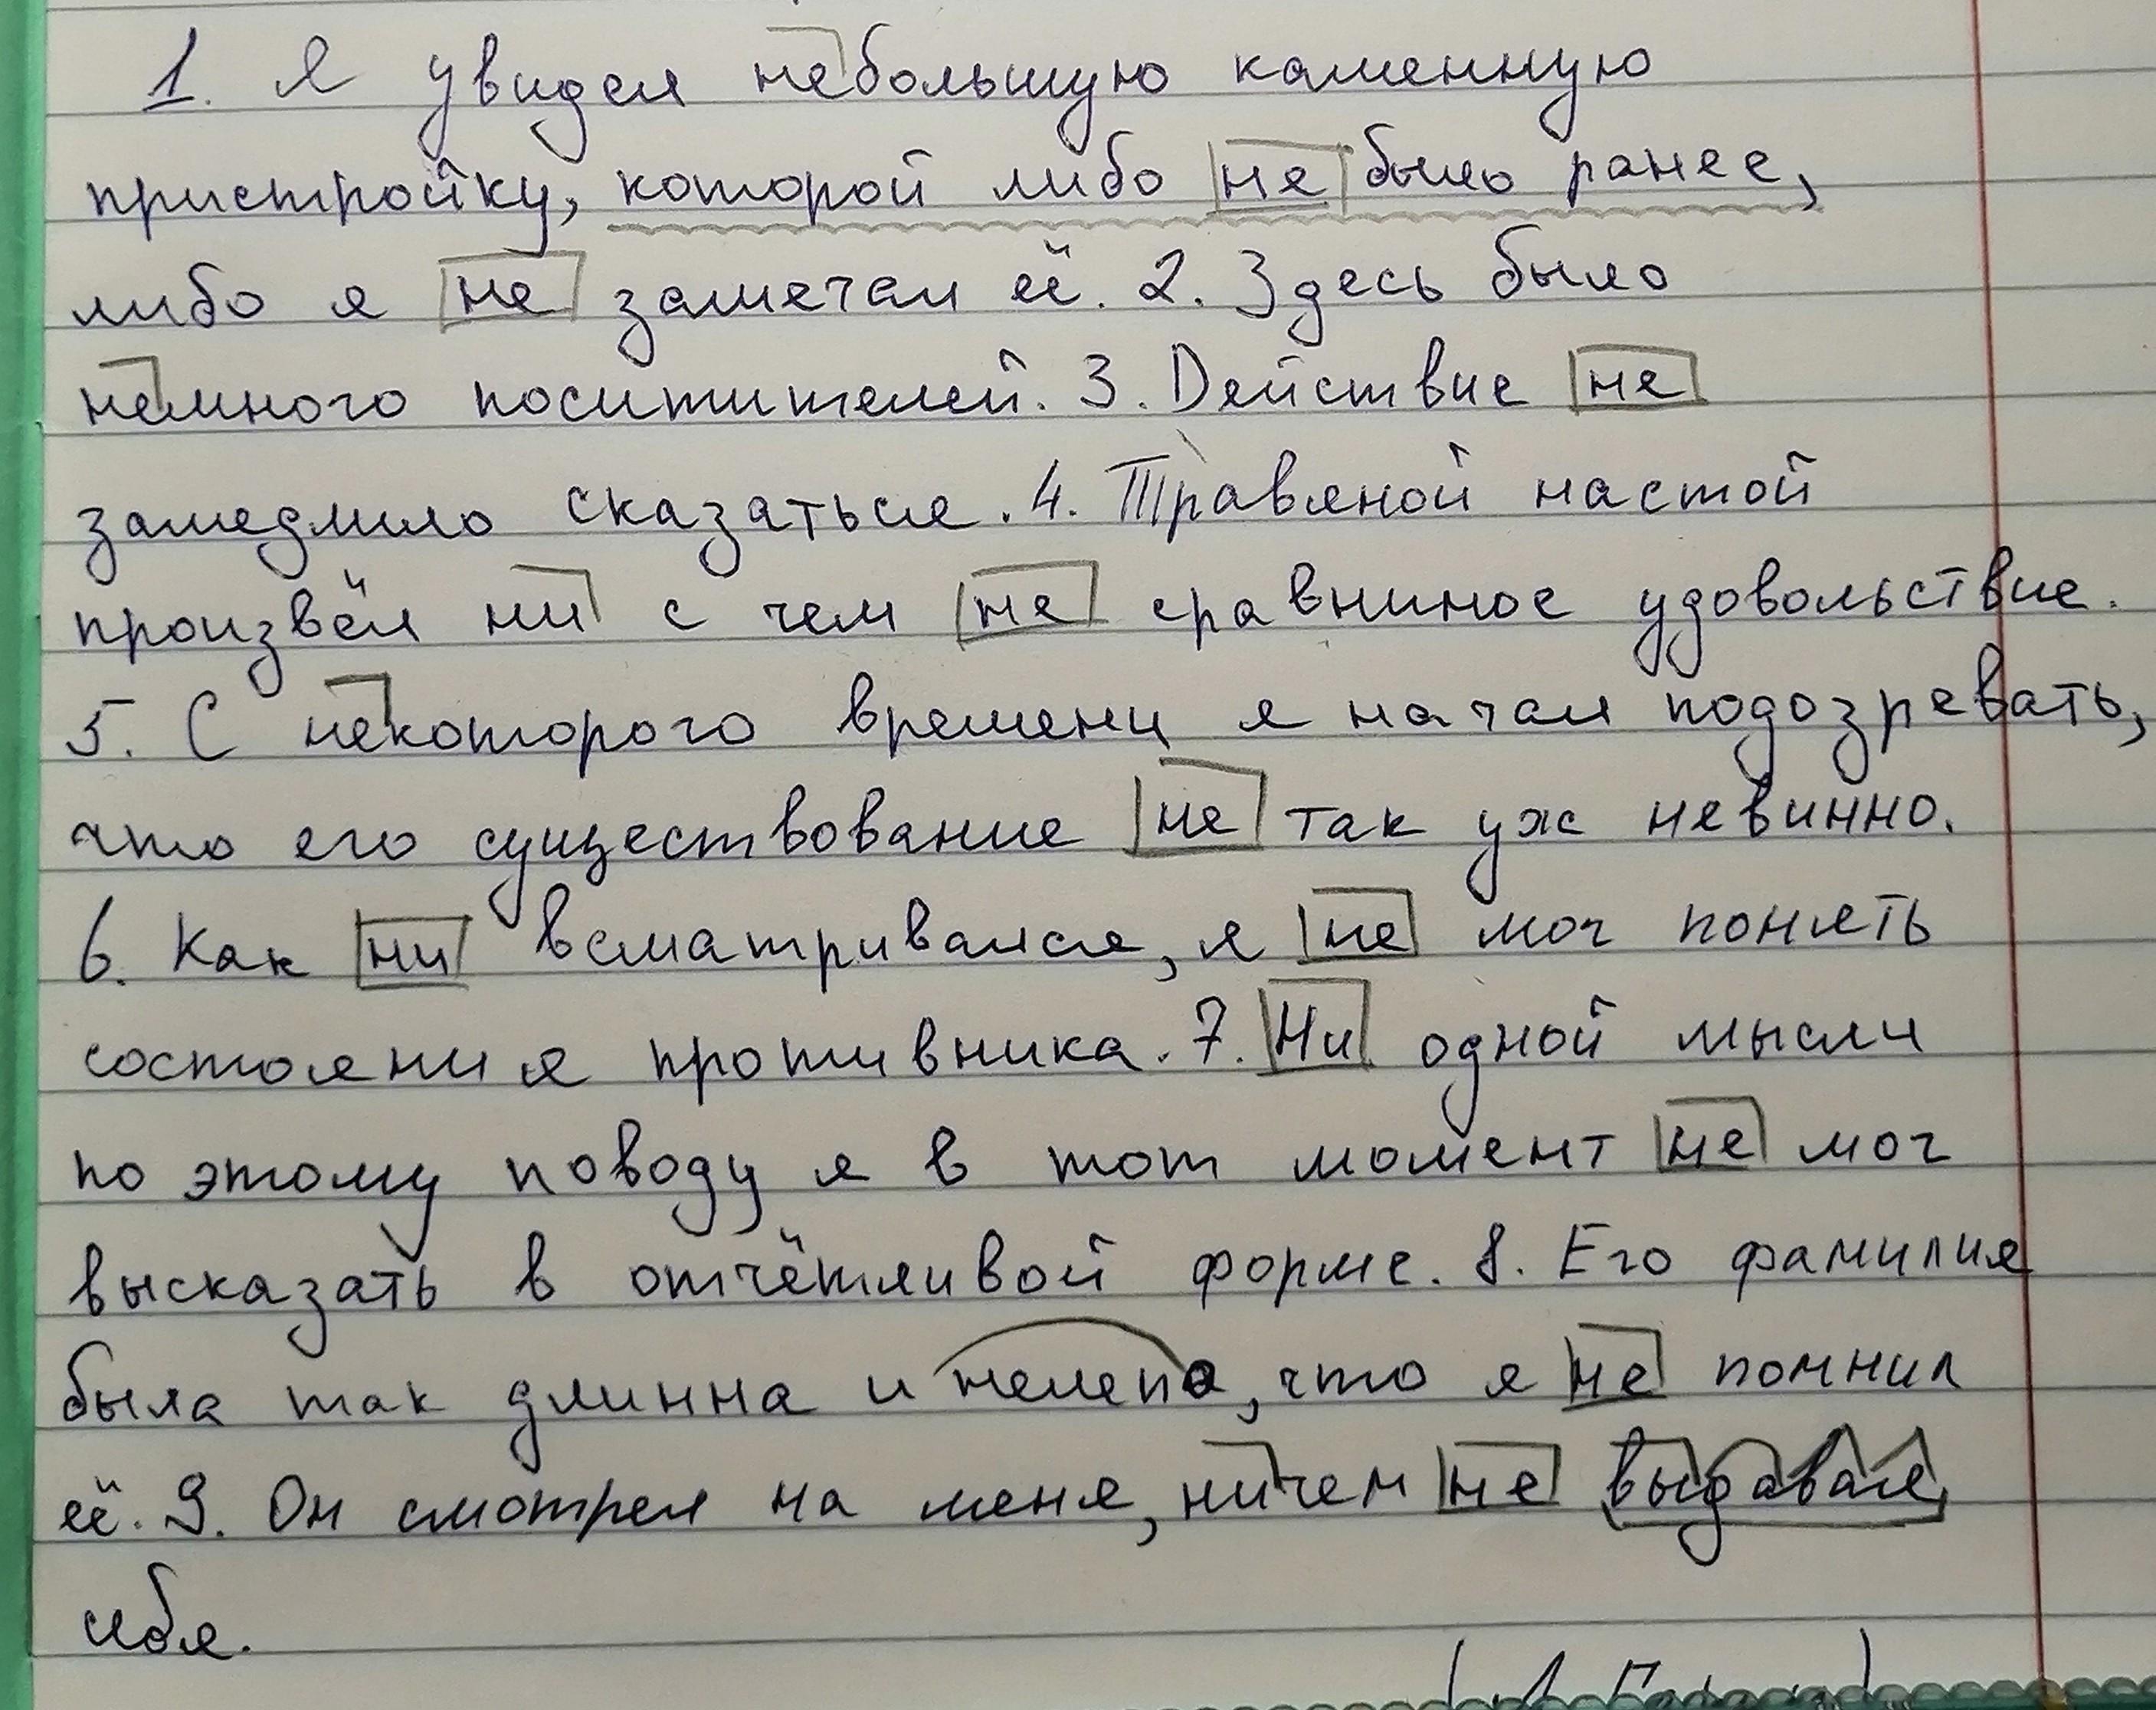 1. Я увидел небольшую каменную
пристройку, которой либо не было ранее,
либо я не замечал её. 2. Здесь было
немного поситителей. 3. Действие не
замедлило сказаться. 4. Травяной настой
произвёл ни с чем не сравнимое удовольствие.
5. С некоторого времени я начал подозревать,
что его существование не так уж невинно.
6. Как ни всматривался, я не мог понять
состояния противника. 7. Ни одной мысли
по этому поводу я в тот момент не мог
высказать в отчётливой форме. 8. Его фамилия
была так длинна и нелепа, что я не помнил
её. 9. Он смотрел на меня, ничем не выдавая
себя.